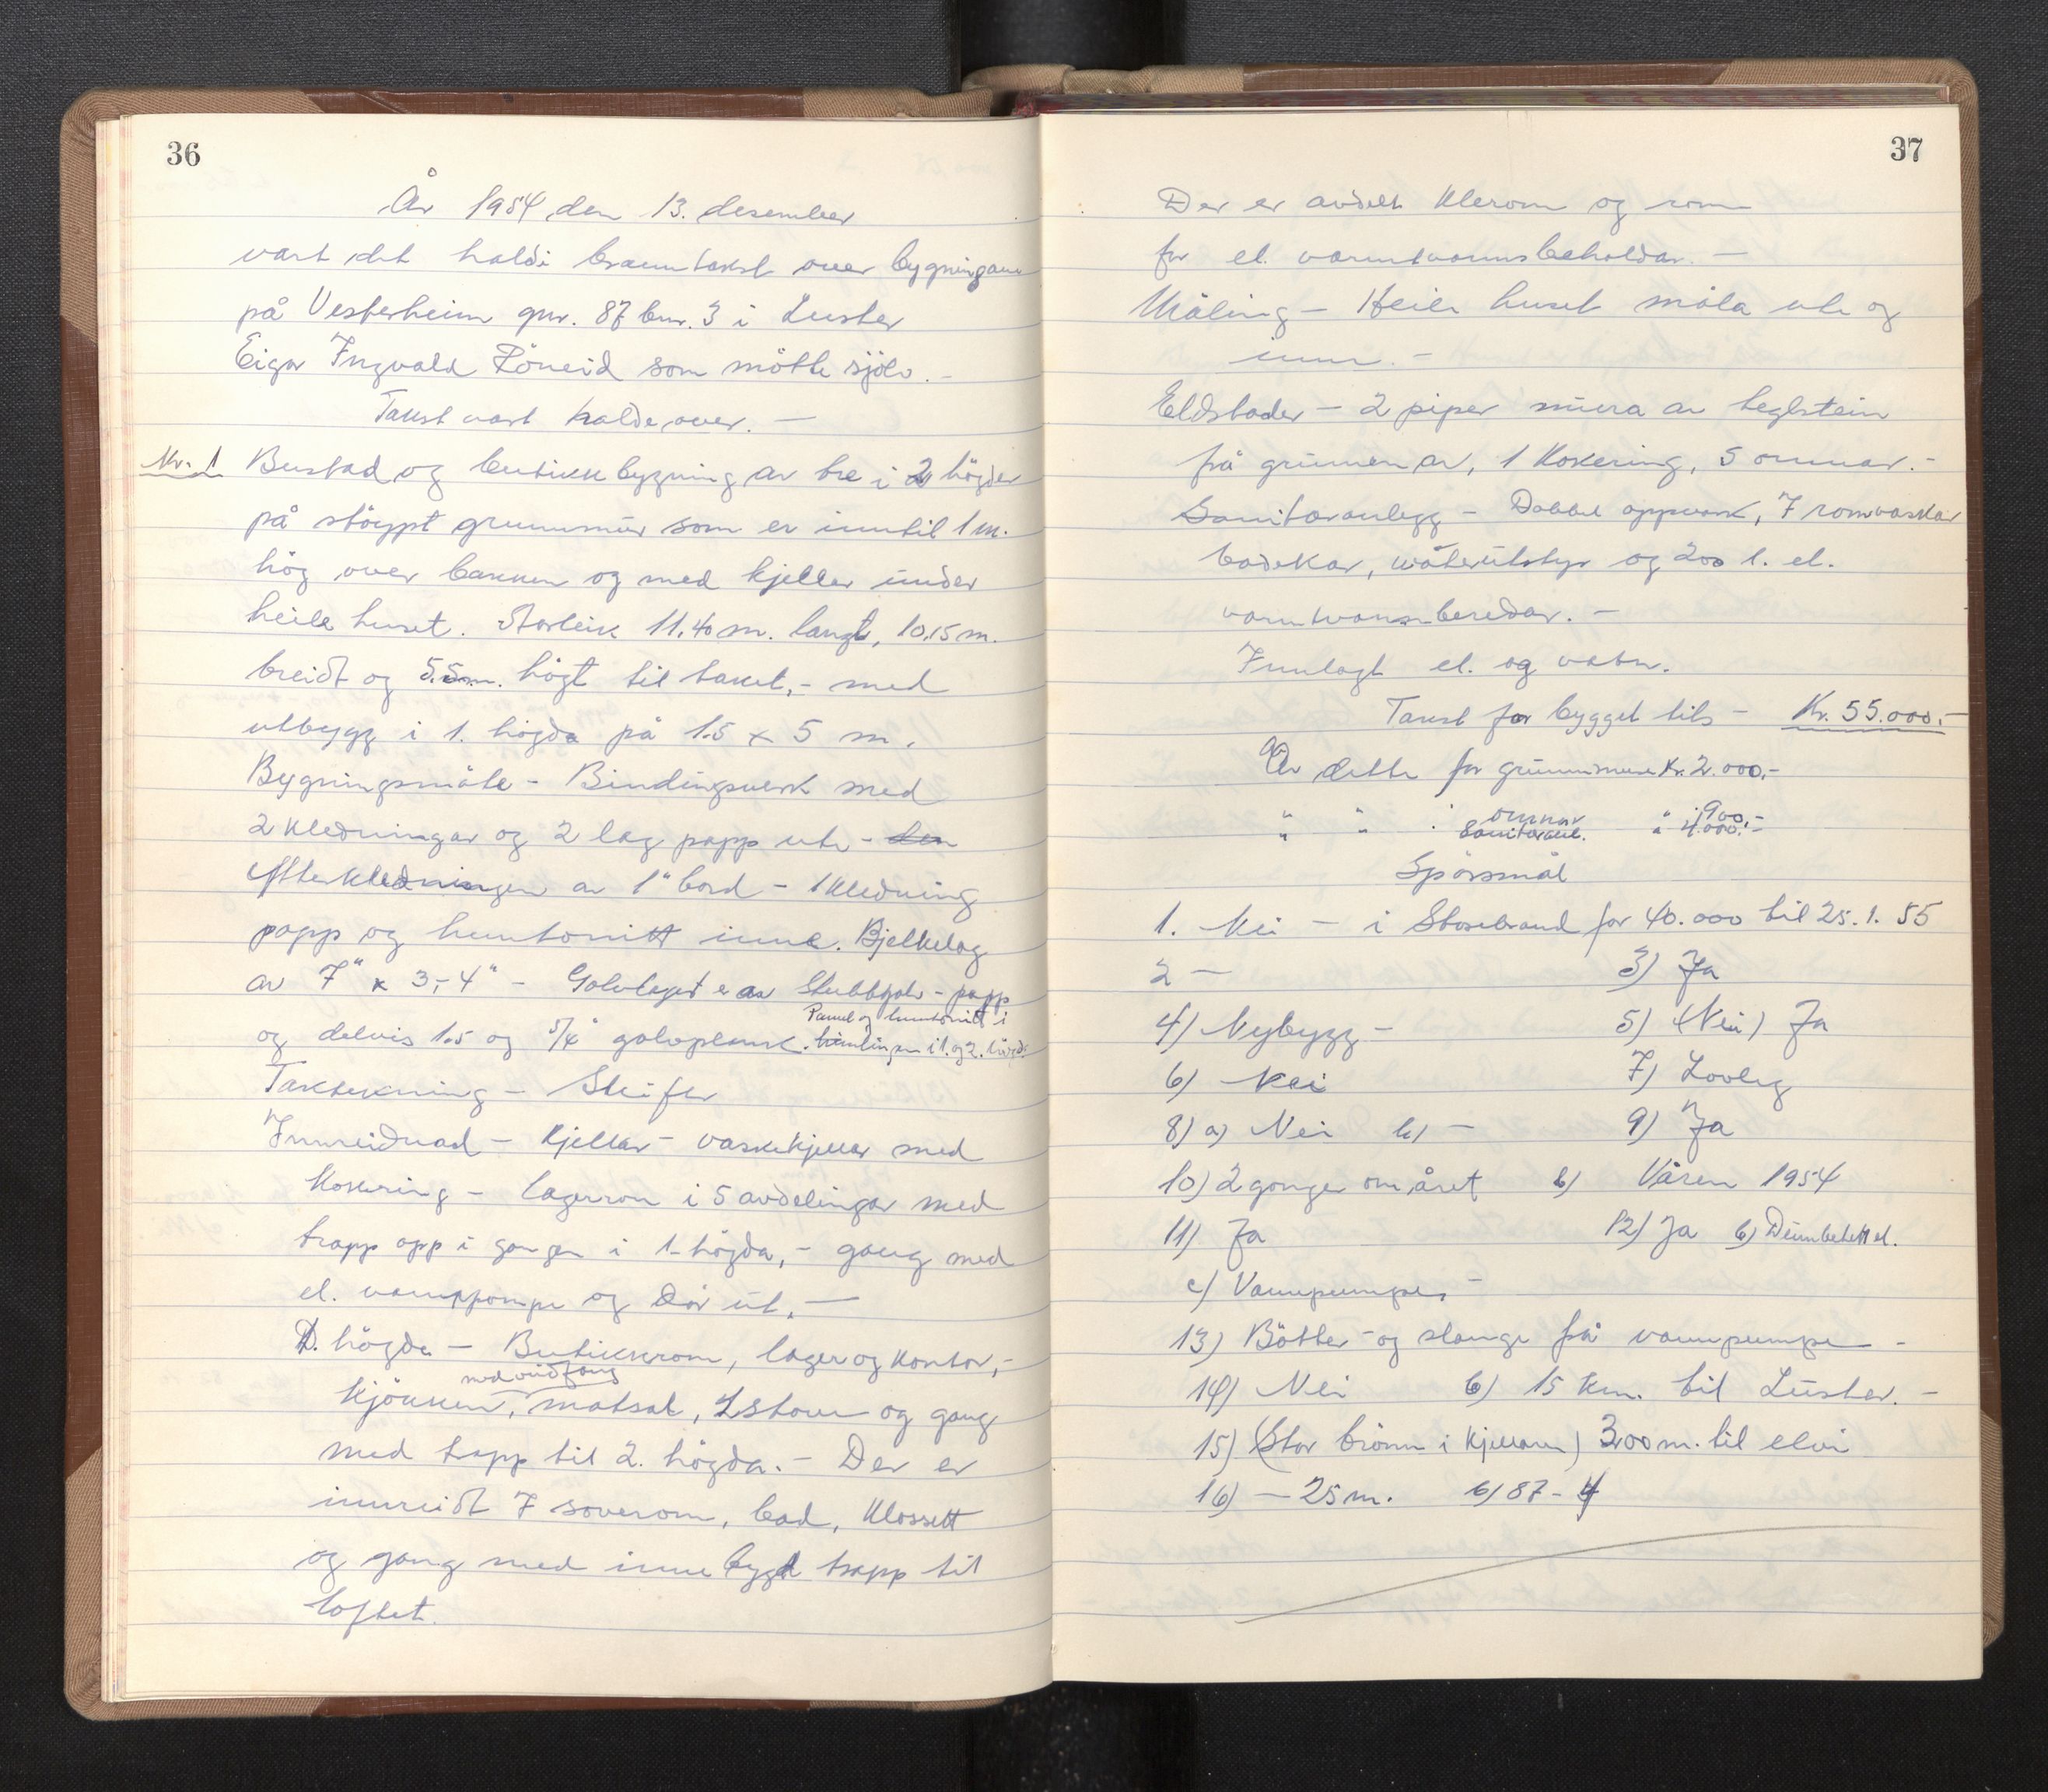 36
År 1954 den 13. desember
vart det haldi branntakst over bygningane
på Vesterheim gnr. 87 bnr. 3 i Luster
Eigar Ingvald Röneid som mötte sjölv. -
Takst vart halde over. —
Nr. 1 Bustad og butikkbygning av tre i 2 högder
på stöypt grunnmur som er inntil 1 m.
hög over bakken og med kjeller under
heile huset. Storleik 11.40 m. langt, 10.15 m.
breidt og 5.5 m. högt til taket, - med
utbygg i 1. högda på 1.5 x 5 m.
Bygningsmåte - Bindingsverk med
2 kledningar og 2 lag papp ute -
Ytterkledningen av 1" bord - 1 kledning
papp og huntonitt inne. Bjelkelag
av 7" x 3,- 4" - Golvlaget er av Stubbgolv - papp
og delvis 1.5 og 5/4" golvplank. Panel og huntonitt i himlingen i 1. og 2. högd.
Taktekning - Skifer
Innreidnad - Kjellar - vaskekjellar med
kokering - lagerrom i 5 avdelingar med
trapp opp i gangen i 1. högda, - gang med
el. vannpompe og dör ut. —
1. högda - Butikkrom, lager og kontor, -
kjökken med vidfang, matsal, 2 stover og gang
med trapp til 2. högda. - Der er
innreidt 7 soverom, bad, klossett
og gang med innebygd trapp til
loftet.
37
Der er avdelt klerom og rom
for el. varmtvannsbeholdar. -
Måling - Heile huset måla ute og
inne. -
Eldstader - 2 piper mura av teglstein
frå grunnen av, 1 kokering, 5 omnar. -
Sanitæranlegg - Dobbel oppvask, 7 romvaskar
badekar, watérutstyr og 200 l. el.
varmtvannsberedar. -
Innlagt el. og vatn.
Takst for bygget tils - Kr. 55.000.-
Av dette for grunnmure Kr. 2.000,-
" " " omnar " 1900,-
" " Sanitæranl. " 4.000.-
Spörsmål
1. Nei - i Storebrand for 40.000 til 25.1. 55
2 — 3) Ja
4) Nybygg - 5) (Nei) Ja
6) Nei 7) Lovleg
8) a) Nei b) - 9) Ja
10) 2 gonger om året b) Våren 1954
11) Ja 12) Ja b) el.
c) Vannpumpe, -
13) Bötter - og slange frå vannpumpe -
14) Nei b) 15 km. til Luster. -
15) (Stor brönn i kjellaren) 300 m. til elvi
16) - 25 m. b) 87 - 4